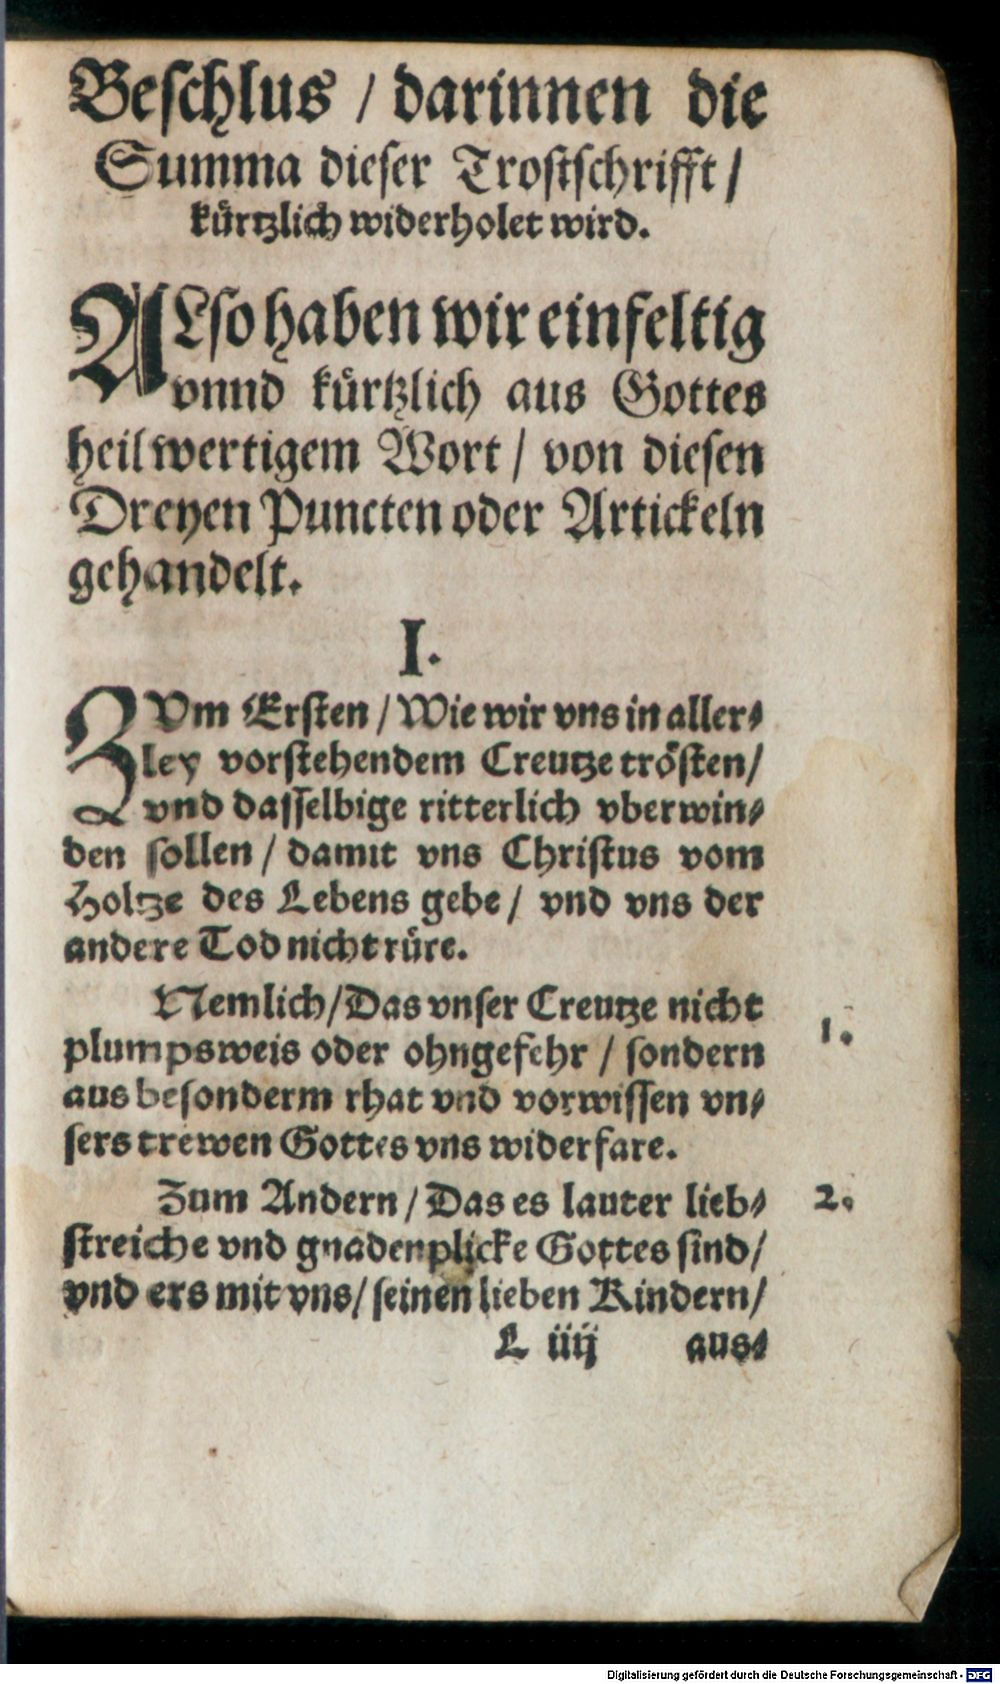 Beschlus / darinnen die
Summa dieser Trostschrifft /
kürtzlich widerholet wird.
ALso haben wir einfeltig
vnnd kürtzlich aus Gottes
heilwertigem Wort / von diesen
Dreyen Puncten oder Artickeln
gehandelt.
I.
ZVm Ersten / Wie wir vns in aller-
ley vorstehendem Creutze trösten /
vnd dasselbige ritterlich vberwin-
den sollen / damit vns Christus vom
Holtze des Lebens gebe / vnd vns der
andere Tod nicht rüre.
Nemlich / Das vnser Creutze nicht 1.
plumpsweis oder ohngefehr / sondern
aus besonderm rhat vnd vorwissen vn-
sers trewen Gottes vns widerfare.
Zum Andern / Das es lauter lieb- 2.
streiche vnd gnadenplicke Gottes sind /
vnd ers mit vns / seinen lieben Kindern /
L iiij aus-
Digitalisierung gefördert durch die Deutsche Forschungsgemeinschaft - DFG